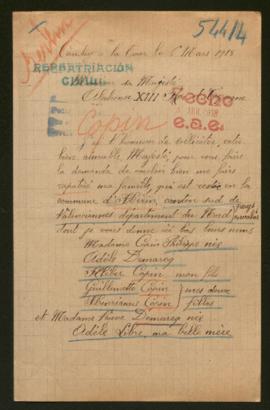 54414
à la Cour le 6 Mars 1918
REPATRIACIÓN
Sa Majesté
Alphonse XIII Roi d'Espagne
Hecho
e.a.e.
Copin
J'ai l'honneur de solliciter, votre
bien aimable, Majesté, pour vous faire
la demande de vouloir bien me faire
rapatrié ma famille, qui est restée en la
commune d' canton sud de
Valenciennes département du Nord pays envahis
Tout je vous donne ici bas leurs noms.
Madame Copin Philippe née
Adèle Demarcq
Kléber Copin mon fils
Guillemette Copin
Copin } mes deux filles
et Madame Veuve Demarcq née
Adèle Libre, ma belle mère